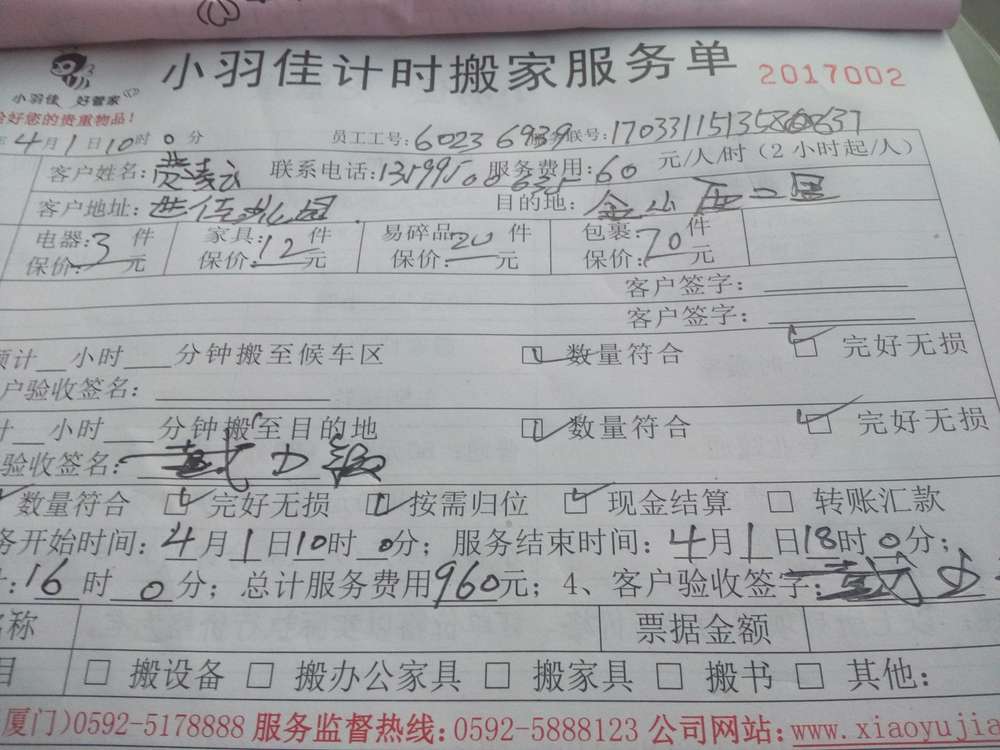 小羽佳计时搬家服务单 2017002
小羽佳 好管家
合好您的贵重物品!
4月1日10时0分 员工工号:6023 6939 联号:
客户姓名: 联系电话: 服务费用:60 元/人/时(2小时起/人)
客户地址: 目的地:金山西二里
电器:3件 家具:12件 易碎品:20件 包裹:70件
保价:元 保价:元 保价:元 保价:元
客户签字:
客户签字:
预计 小时 分钟搬至候车区 数量符合 完好无损
户验收签名:
计 小时 分钟搬至目的地 数量符合 完好无损
验收签名:
数量符合 完好无损 按需归位 现金结算 转账汇款
务开始时间:4月1日10时0分; 服务结束时间:4月1日18时0分;
计:16时0分; 总计服务费用960元; 4、客户验收签字:
名称 票据金额
目 搬设备 搬办公家具 搬家具 搬书 其他:
厦门)0592-5178888 服务监督热线:0592-5888123 公司网站:www.xiaoyujia